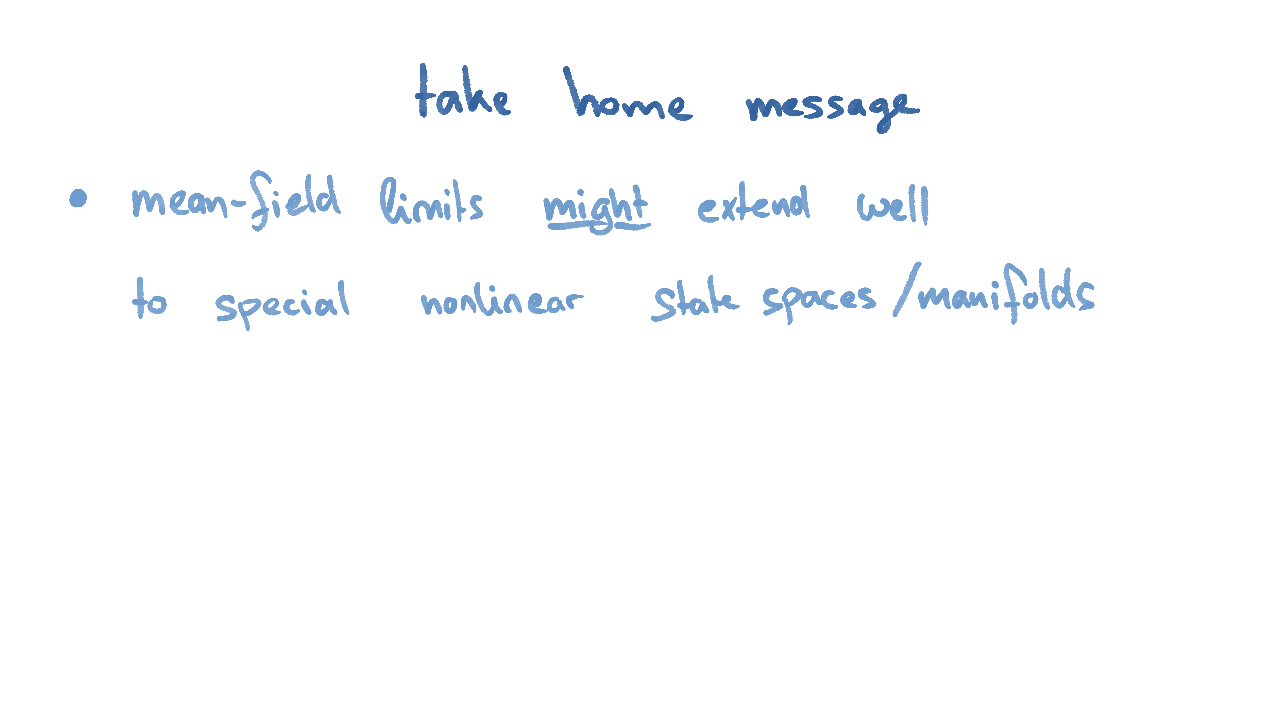 take home message
• mean-field limits might extend well
to special nonlinear state spaces/manifolds